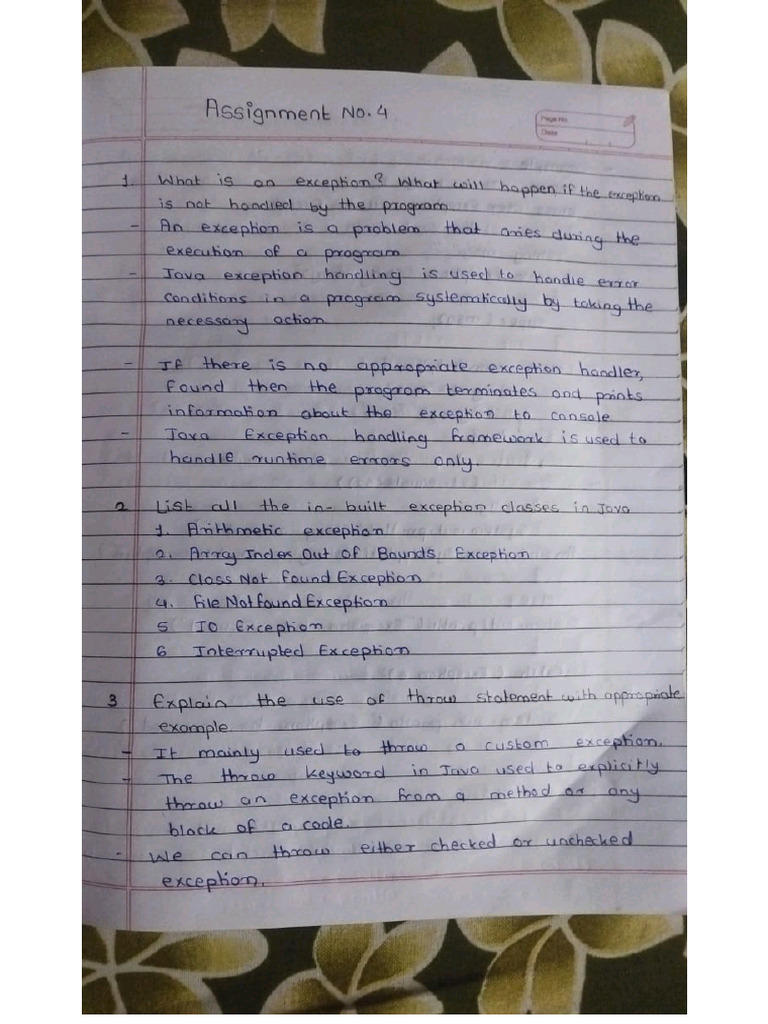 Assignment No. 4
Page No.
Date
1. What is an exception? What will happen if the exception
is not handled by the program.
- An exception is a problem that aries during the
execution of a program
- Java exception handling is used to handle error
conditions in a program systematically by taking the
necessary action
- If there is no appropriate exception handler,
found then the program terminates and prints
information about the exception to console
- Java Exception handling framework is used to
handle runtime errors only.
2 List all the in-built exception classes in Java
1. Arithmetic exception
2. Array Index Out of Bounds Exception
3. Class Not Found Exception
4. File Not Found Exception
5 IO Exception
6 Interrupted Exception
3 Explain the use of throw statement with appropriate
example
- It mainly used to throw a custom exception.
- The throw keyword in Java used to explicitly
throw an exception from a method or any
block of a code.
- We can throw either checked or unchecked
exception.